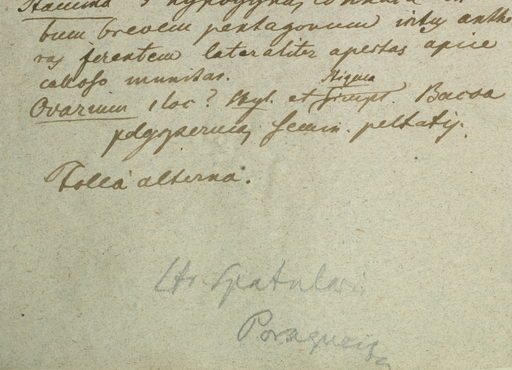 Stamina 5 hypogyna, connata in
bum brevem pentagonum intus anthe
ras ferentem lateraliter apertas apice
calloso munitas.
Stigma
Ovarium 1loc? Styl. et simpl. Bacca
polysperma, semin. peltatis.
Folia alterna.
Poraqueiba